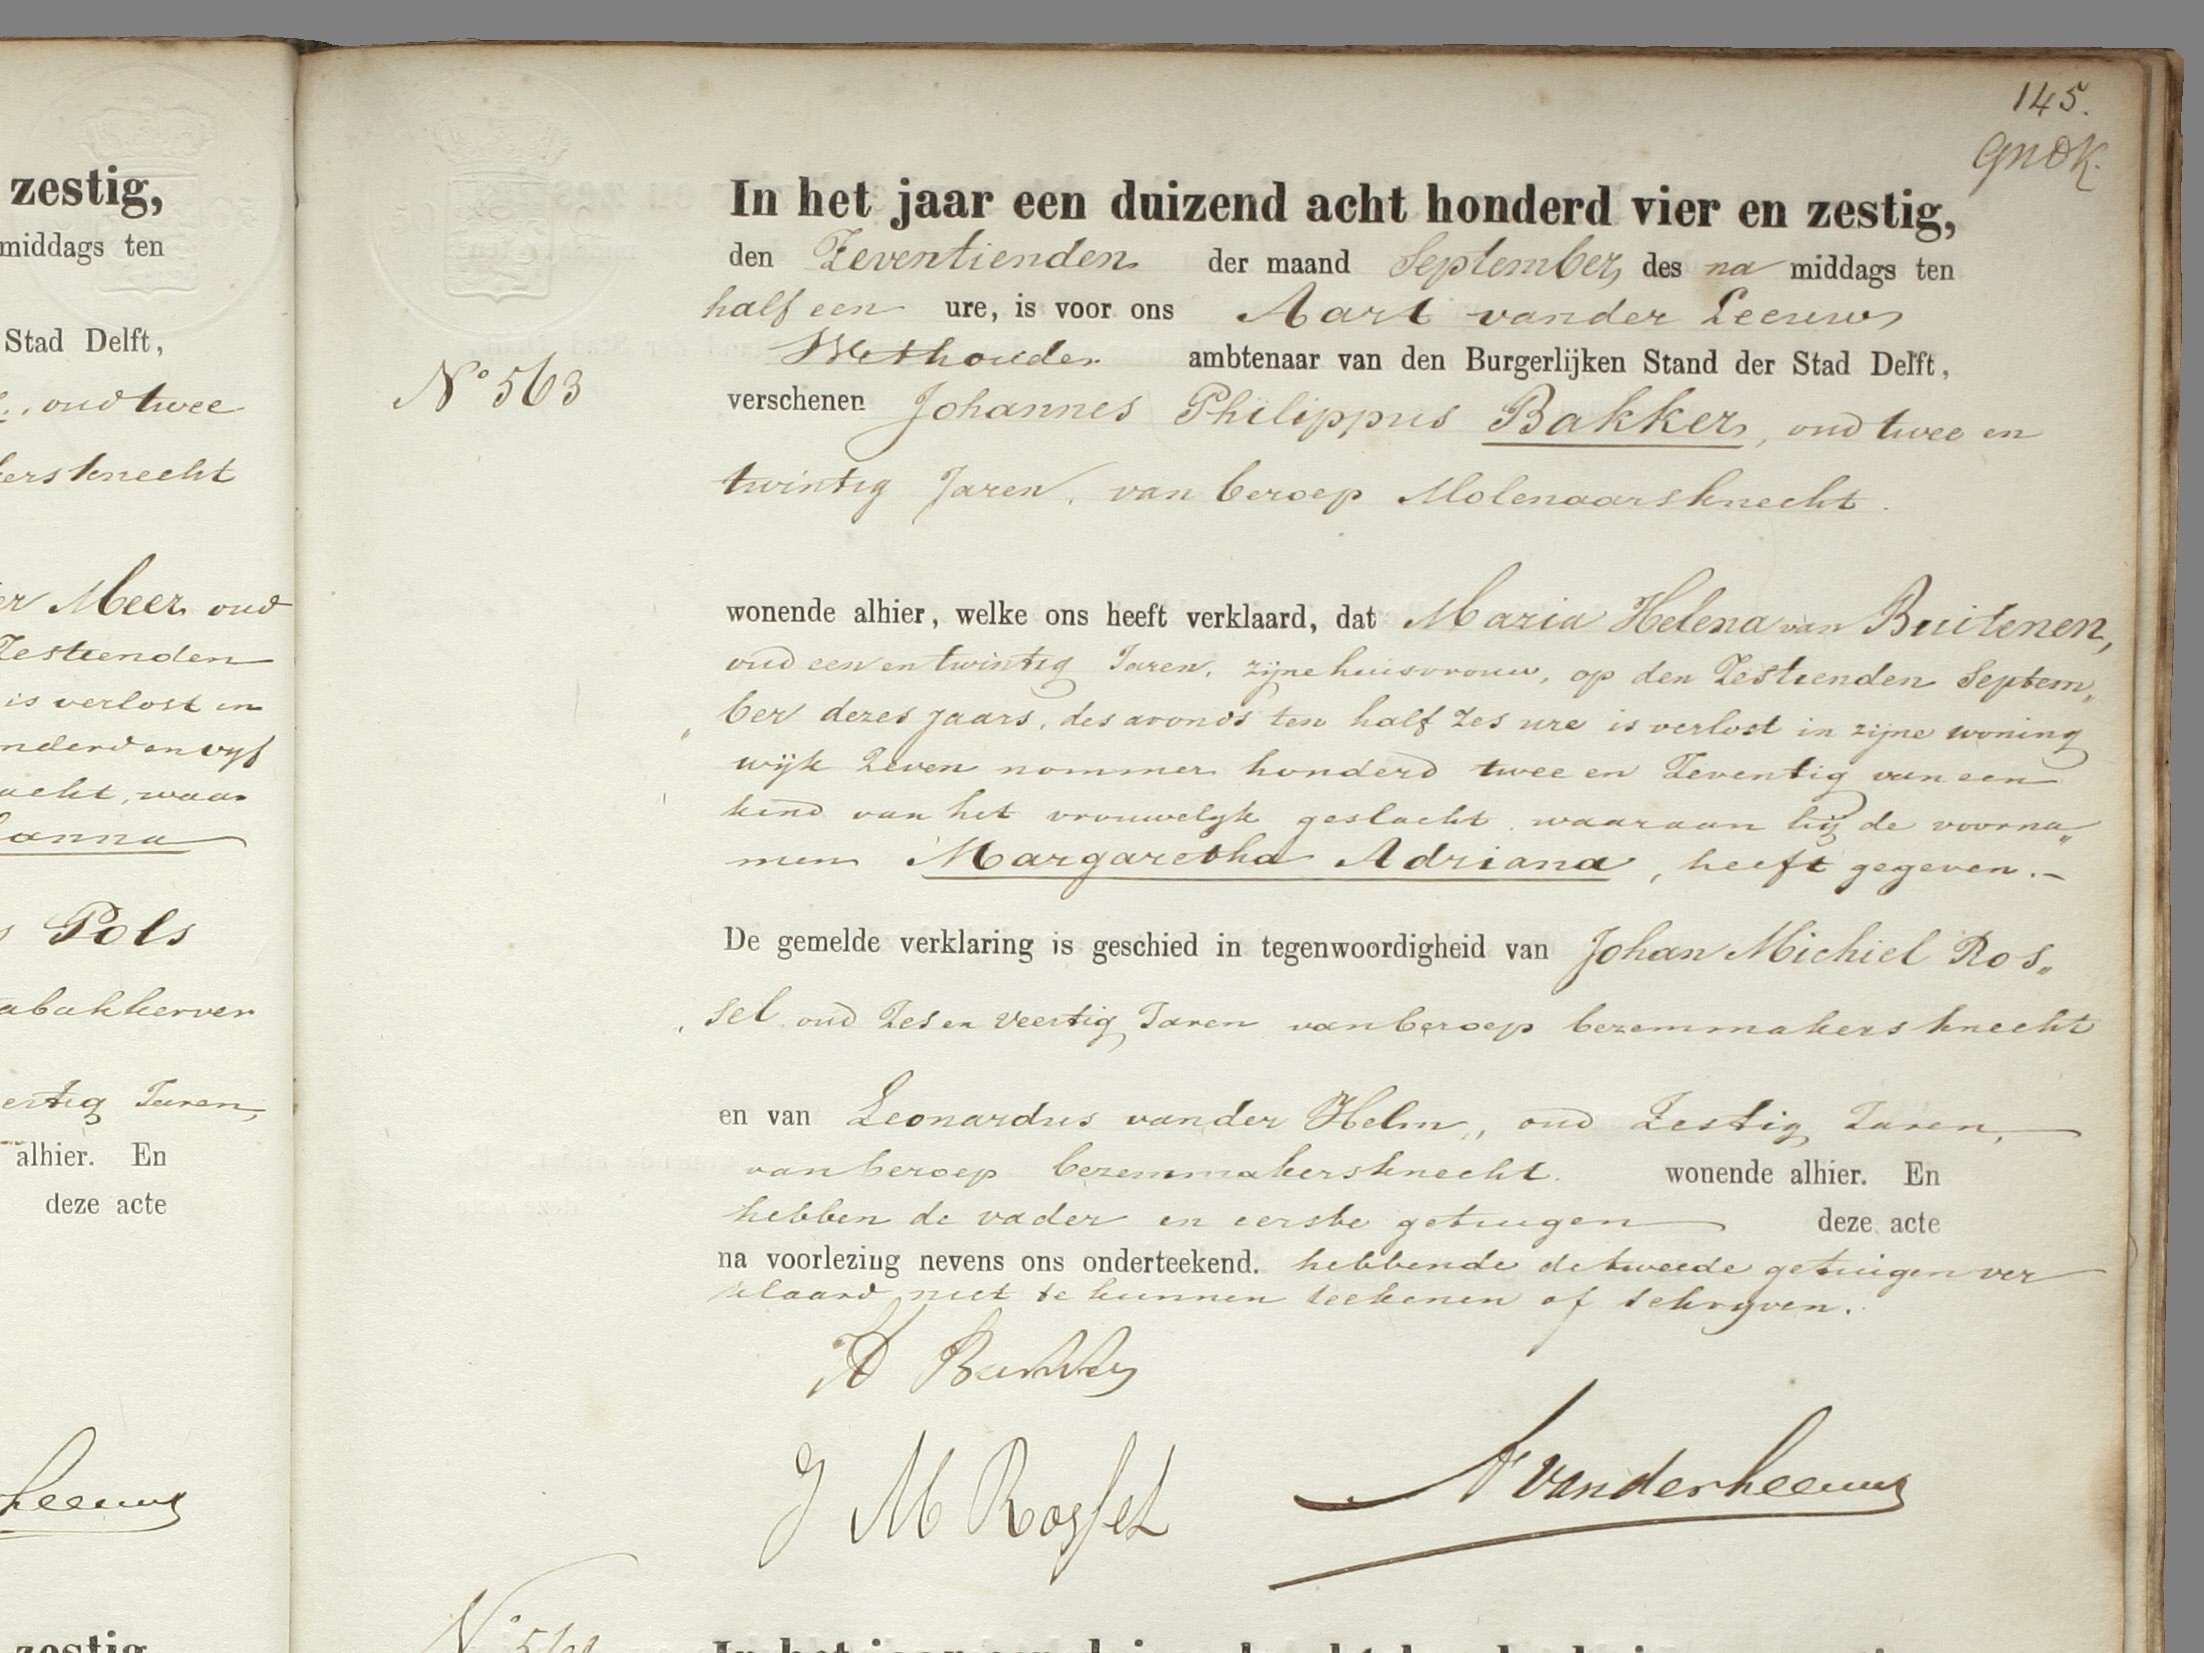 zestig,
middags ten
Stad Delft,
oud twee
kersknecht
er Meer oud
Zestienden
is verlost in
nderd en vyf
acht, waar
anna
Pols
abakkerver
ertig Jaren,
alhier. En
deze acte
Leeuw
zestig
145.
In het jaar een duizend acht honderd vier en zestig,
den Zeventienden der maand September, des na middags ten
half een ure, is voor ons Aart vander Leeuw
Wethouder ambtenaar van den Burgerlijken Stand der Stad Delft,
Nº 563
verschenen Johannes Philippus Bakker, oud twee en
twintig Jaren, van beroep Molenaarsknecht.
wonende alhier, welke ons heeft verklaard, dat Maria Helena van Buitenen,
oud een en twintig Jaren, zijne huisvrouw, op den Zestienden Septem„
„ber dezes jaars, des avonds ten half zes ure is verlost in zijne woning
wijk Zeven nommer honderd twee en Zeventig van een
kind van het vrouwelyk geslacht waaraan hij de voorna„
men Margaretha Adriana, heeft gegeven.-
De gemelde verklaring is geschied in tegenwoordigheid van Johan Michiel Ros„
sel oud Zes en Veertig Jaren van beroep bezemmakersknecht
en van Leonardus vander Helm, oud Zestig Jaren,
van beroep bezemmakersknecht. wonende alhier. En
hebben de vader en eerste getuigen deze acte
na voorlezing nevens ons onderteekend. hebbende de tweede getuigen ver
klaard niet te kunnen teekenen of schryven.
Bakker
J M Rossel
A vanderLeeuw
Nº 564